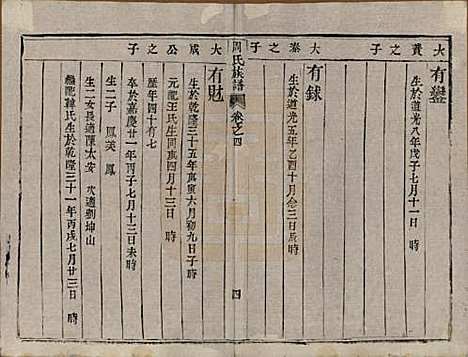 大貴之子
有鑾
生於道光八年戊子七月十一日 時
大泰之子
有銶
生於道光五年乙酉十月念三日辰時
周氏族譜 卷之四 四
大成公之子
有財
生於乾隆三十五年庚寅六月初九日子時
元配王氏生同庚四月十三日 時
歷年四十有七
卒於嘉慶廿一年丙子七月十三日未時
生二子 鳳美 鳳
生二女長適陳太安 次適劉坤山
繼配韓氏生於乾隆三十一年丙戌七月廿三日 時